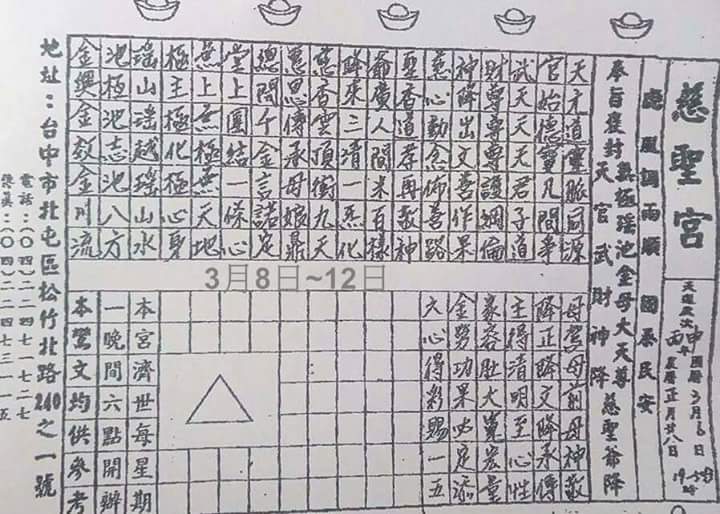 慈聖宮
天運歲次丙申年
國曆3月6日
農曆正月廿八日
風調雨順 國泰民安
無極瑤池金母大天尊
奉旨褒封 慈聖爺降
天官武財神降
天元道靈脈同源
官始德寶凡間爭
武天尊天君子道
財尊尊護綱倫
神降出文善作果
慈心動念佈善路
聖香道孝再敬神
爺廣人間米百樣
降來三清一炁化
慈香雲頂銜九天
恩思傳承母娘鼎
總問个金言諾定
堂上團結一條心
無上無極無天地
極主極化極心身
瑤山瑤越瑤山水
池極池志池八方
金金金川流
3月8日~12日
母鸞母前母神敬
降正降文降承傳
主得清明至心性
豪容肚大寬宏量
金勞功果必定添
六心得彩賜一五
本宮濟世每星期
一晚間六點開辦
本鸞文均供參考
地址：台中市北屯區松竹北路240之一號
電話：(〇四)二二四七一七二七
傳真：(〇四)二二四七三一一五